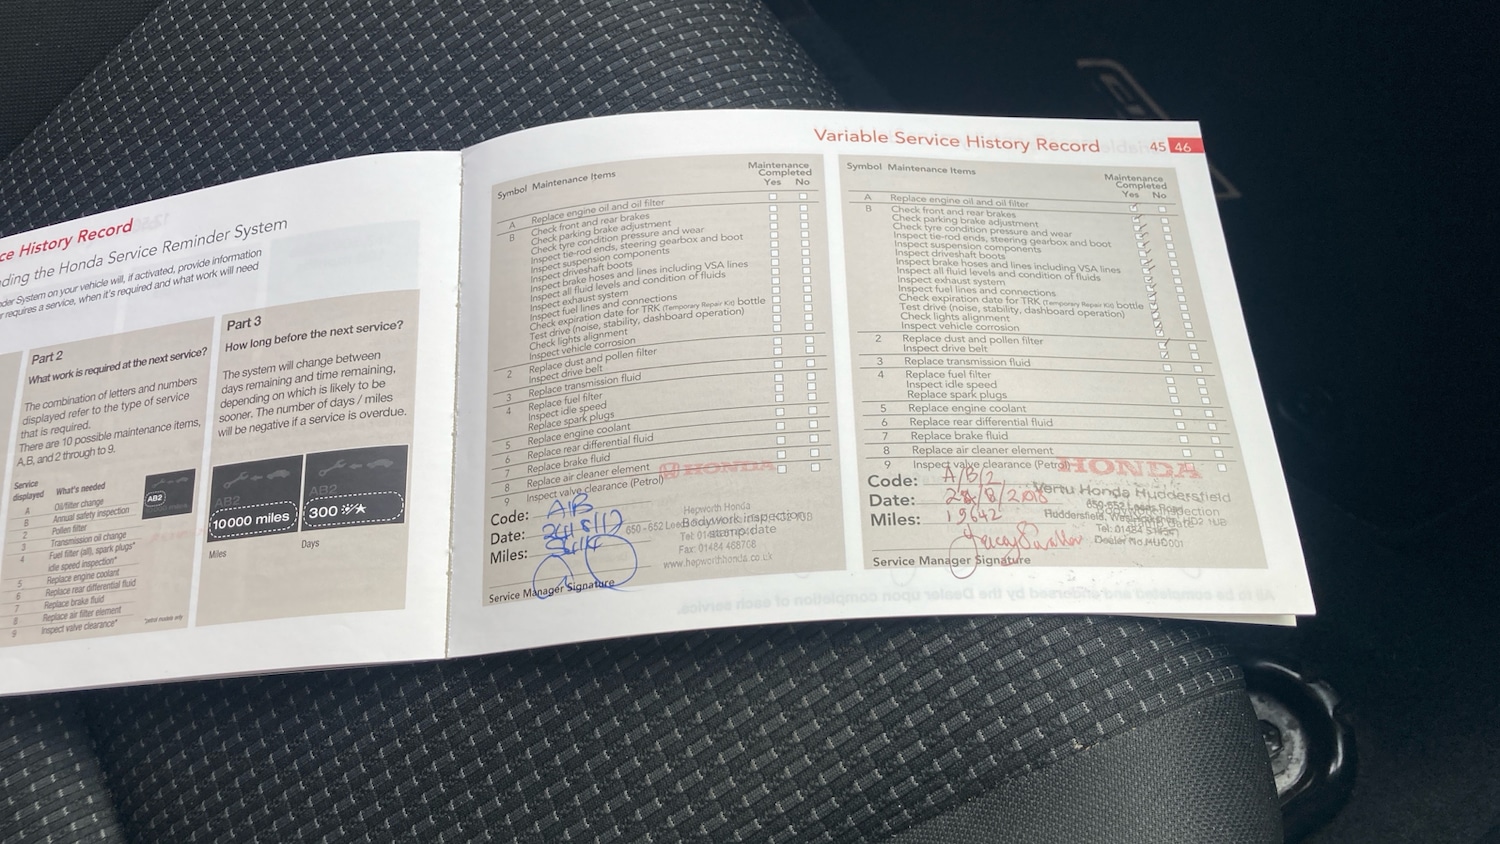 ce History Record
ding the Honda Service Reminder System
der System on your vehicle will, if activated, provide information
r requires a service, when it's required and what work will need
Part 2
What work is required at the next service?
The combination of letters and numbers
displayed refer to the type of service
that is required.
There are 10 possible maintenance items,
A,B, and 2 through to 9.
Service displayed What's needed
A Oil/filter change
B Annual safety inspection
2 Pollen filter
3 Transmission oil change
4 Fuel filter (all), spark plugs*
idle speed inspection*
5 Replace engine coolant
6 Replace rear differential fluid
7 Replace brake fluid
8 Replace air filter element
9 Inspect valve clearance*
AB2
*petrol models only
Part 3
How long before the next service?
The system will change between
days remaining and time remaining,
depending on which is likely to be
sooner. The number of days / miles
will be negative if a service is overdue.
AB2
10000 miles
Miles
AB2
300
Days
Variable Service History Record 45 46
Symbol Maintenance Items
Maintenance
Completed
Yes No
A Replace engine oil and oil filter
B Check front and rear brakes
Check parking brake adjustment
Check tyre condition pressure and wear
Inspect tie-rod ends, steering gearbox and boot
Inspect suspension components
Inspect driveshaft boots
Inspect brake hoses and lines including VSA lines
Inspect all fluid levels and condition of fluids
Inspect exhaust system
Inspect fuel lines and connections
Check expiration date for TRK (Temporary Repair Kit) bottle
Test drive (noise, stability, dashboard operation)
Check lights alignment
Inspect vehicle corrosion
2 Replace dust and pollen filter
Inspect drive belt
3 Replace transmission fluid
4 Replace fuel filter
Inspect idle speed
Replace spark plugs
5 Replace engine coolant
6 Replace rear differential fluid
7 Replace brake fluid
8 Replace air cleaner element
9 Inspect valve clearance (Petrol)
HONDA
Code: A/B
Date:
Miles:
Service Manager Signature
Hepworth Honda
650 - 652 Leeds
Bodywork inspection
stamp date
Fax: 01484 468708
www.hepworthhonda.co.uk
Symbol Maintenance Items
Maintenance
Completed
Yes No
A Replace engine oil and oil filter
B Check front and rear brakes
Check parking brake adjustment
Check tyre condition pressure and wear
Inspect tie-rod ends, steering gearbox and boot
Inspect suspension components
Inspect driveshaft boots
Inspect brake hoses and lines including VSA lines
Inspect all fluid levels and condition of fluids
Inspect exhaust system
Inspect fuel lines and connections
Check expiration date for TRK (Temporary Repair Kit) bottle
Test drive (noise, stability, dashboard operation)
Check lights alignment
Inspect vehicle corrosion
2 Replace dust and pollen filter
Inspect drive belt
3 Replace transmission fluid
4 Replace fuel filter
Inspect idle speed
Replace spark plugs
5 Replace engine coolant
6 Replace rear differential fluid
7 Replace brake fluid
8 Replace air cleaner element
9 Inspect valve clearance (Petrol)
HONDA
Code: A/B/2
Date: /8/2018
Miles: 19642
Service Manager Signature
Vertu Honda Huddersfield
Huddersfield,
Dealer No.HUD001